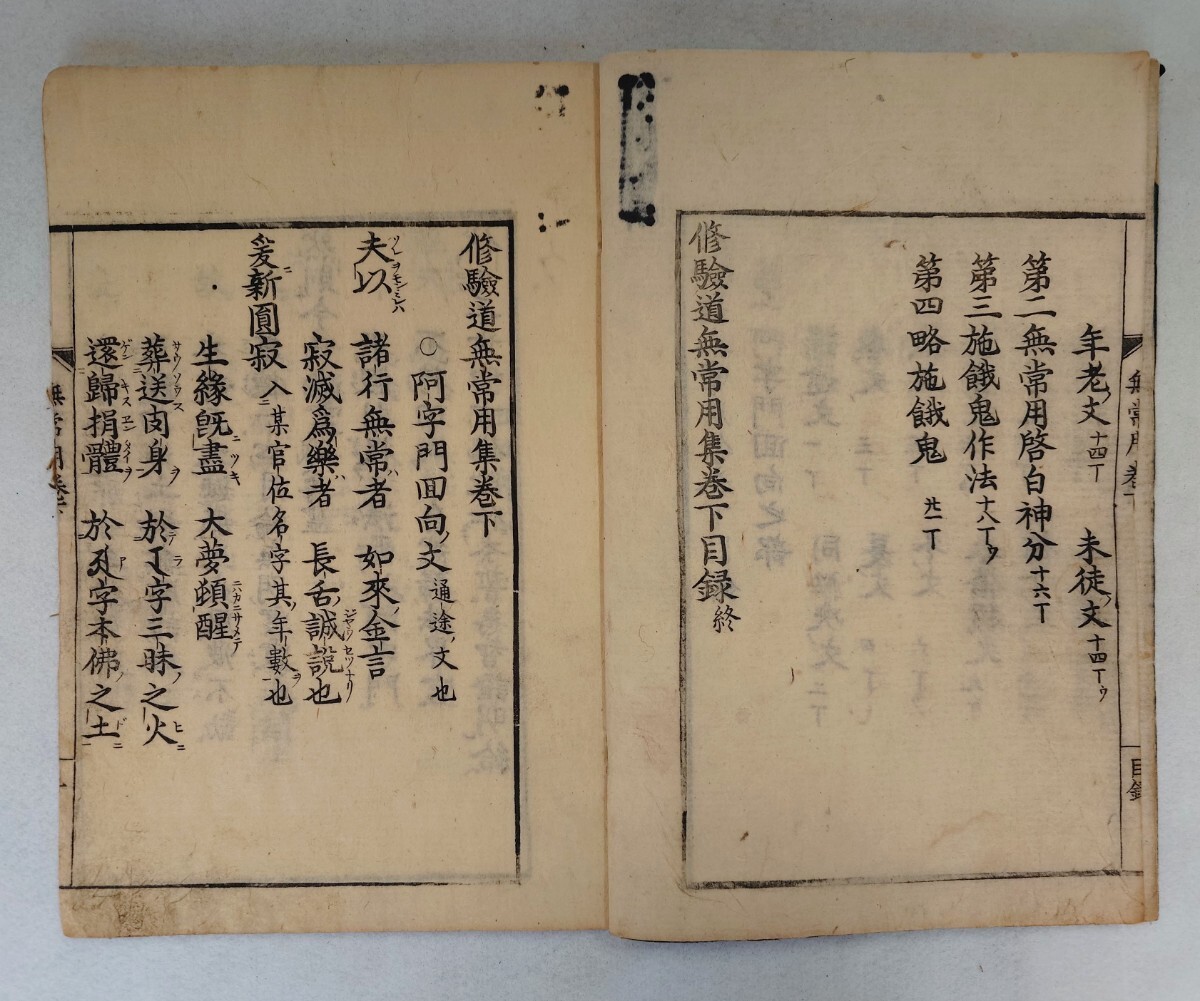 無常用卷下
目錄
年老文 十四丁 未徒文 十四丁ウ
第二無常用啓白神分 十六丁
第三施餓鬼作法 十八丁ウ
第四略施餓鬼 廿一丁
修驗道無常用集卷下目録 終
修驗道無常用集卷下
○阿字門回向ノ文 通途ノ文也
夫以 諸行無常者 如來ノ金言
寂滅爲樂者 長舌ノ誠說也
爰新圓寂 入某官位名字其ノ年數ヲ也
生緣旣盡 大夢頓醒
葬送肉身 於 字三昧之火
還歸捐體 於 字本佛之土
無常用卷下